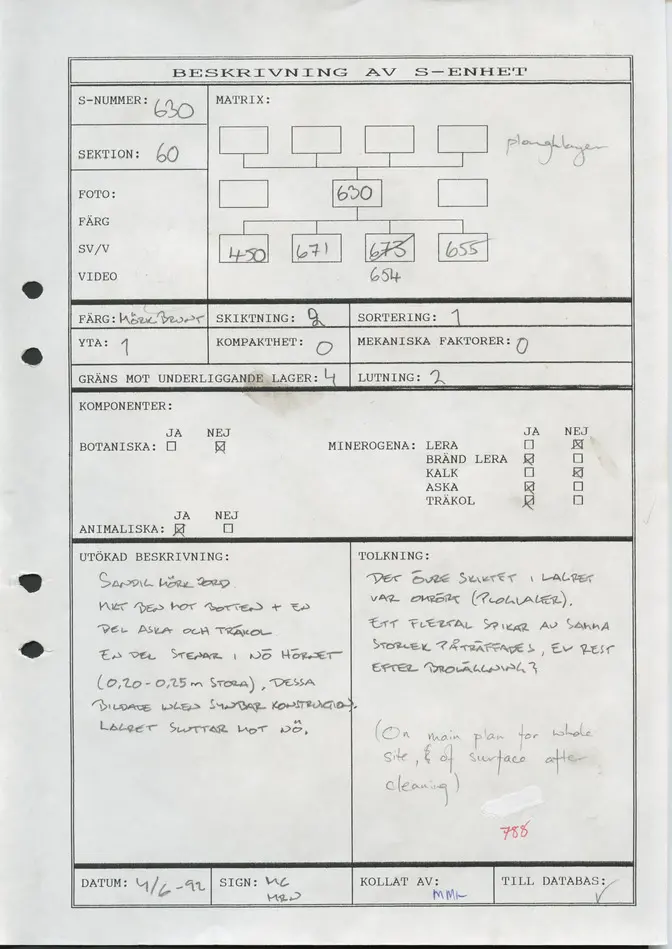 BESKRIVNING AV S-ENHET
S-NUMMER: 630
MATRIX:
SEKTION: 60
ploughlayer
FOTO:
630
FÄRG
SV/V
450 671 673 655
VIDEO
654
FÄRG: MÖRK BRUNT
SKIKTNING: 2
SORTERING: 1
YTA: 1
KOMPAKTHET: 0
MEKANISKA FAKTORER: 0
GRÄNS MOT UNDERLIGGANDE LAGER: 4
LUTNING: 2
KOMPONENTER:
JA NEJ
BOTANISKA: ☐ ☒
JA NEJ
MINEROGENA: LERA ☐ ☒
BRÄND LERA ☒ ☐
KALK ☐ ☒
ASKA ☒ ☐
TRÄKOL ☒ ☐
JA NEJ
ANIMALISKA: ☒ ☐
UTÖKAD BESKRIVNING:
SANDIG MÖRK JORD.
MKT BEN MOT BOTTEN + EN
DEL ASKA OCH TRÄKOL
EN DEL STENAR I NÖ HÖRNET
(0,20-0,25m STORA), DESSA
BILDADE INGEN SYNBAR KONSTRUKTION.
LAGRET SLUTTAR MOT NÖ.
TOLKNING:
DET ÖVRE SKIKTET I LAGRET
VAR OMRÖRT (PLOGLAGER).
ETT FLERTAL SPIKAR AV SAMMA
STORLEK PÅTRÄFFADES, EV REST
EFTER BROLÄGGNING?
(On main plan for whole
site, & of surface after
cleaning)
788
DATUM: 4/6-92
SIGN: MG
KOLLAT AV: MML
TILL DATABAS: ✓